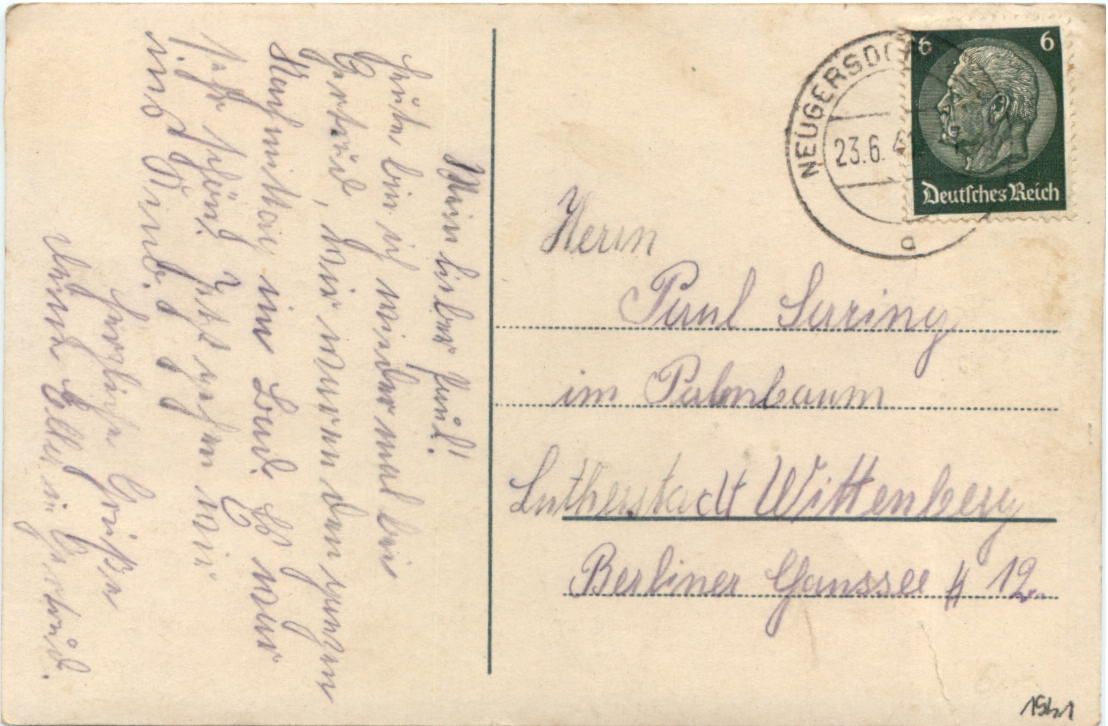 Mein lieber Paul!
Heute bin ich wieder mal bei
Gertrud, wir waren den ganzen
Nachmittag im Bad. Es war
sehr schön. Jetzt gehen wir
ins
Herzliche Grüße
Deine Elli u. Gertrud.
NEUGERSDO
23.6.4
a
6 6
Deutsches Reich
Herrn
Paul Saring
im Palmbaum
Lutherstadt Wittenberg
Berliner Chaussee # 12.
1941